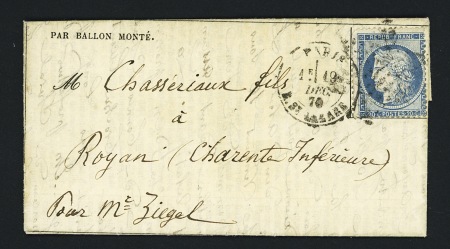 PAR BALLON MONTÉ.
M. Chassériaux fils
à
Royan (Charente Inférieure)
Pour Mr Ziegel
PARIS
19
DEC.
70
R. ST LAZARE
REPUB. FRANC.
20 POSTES 20